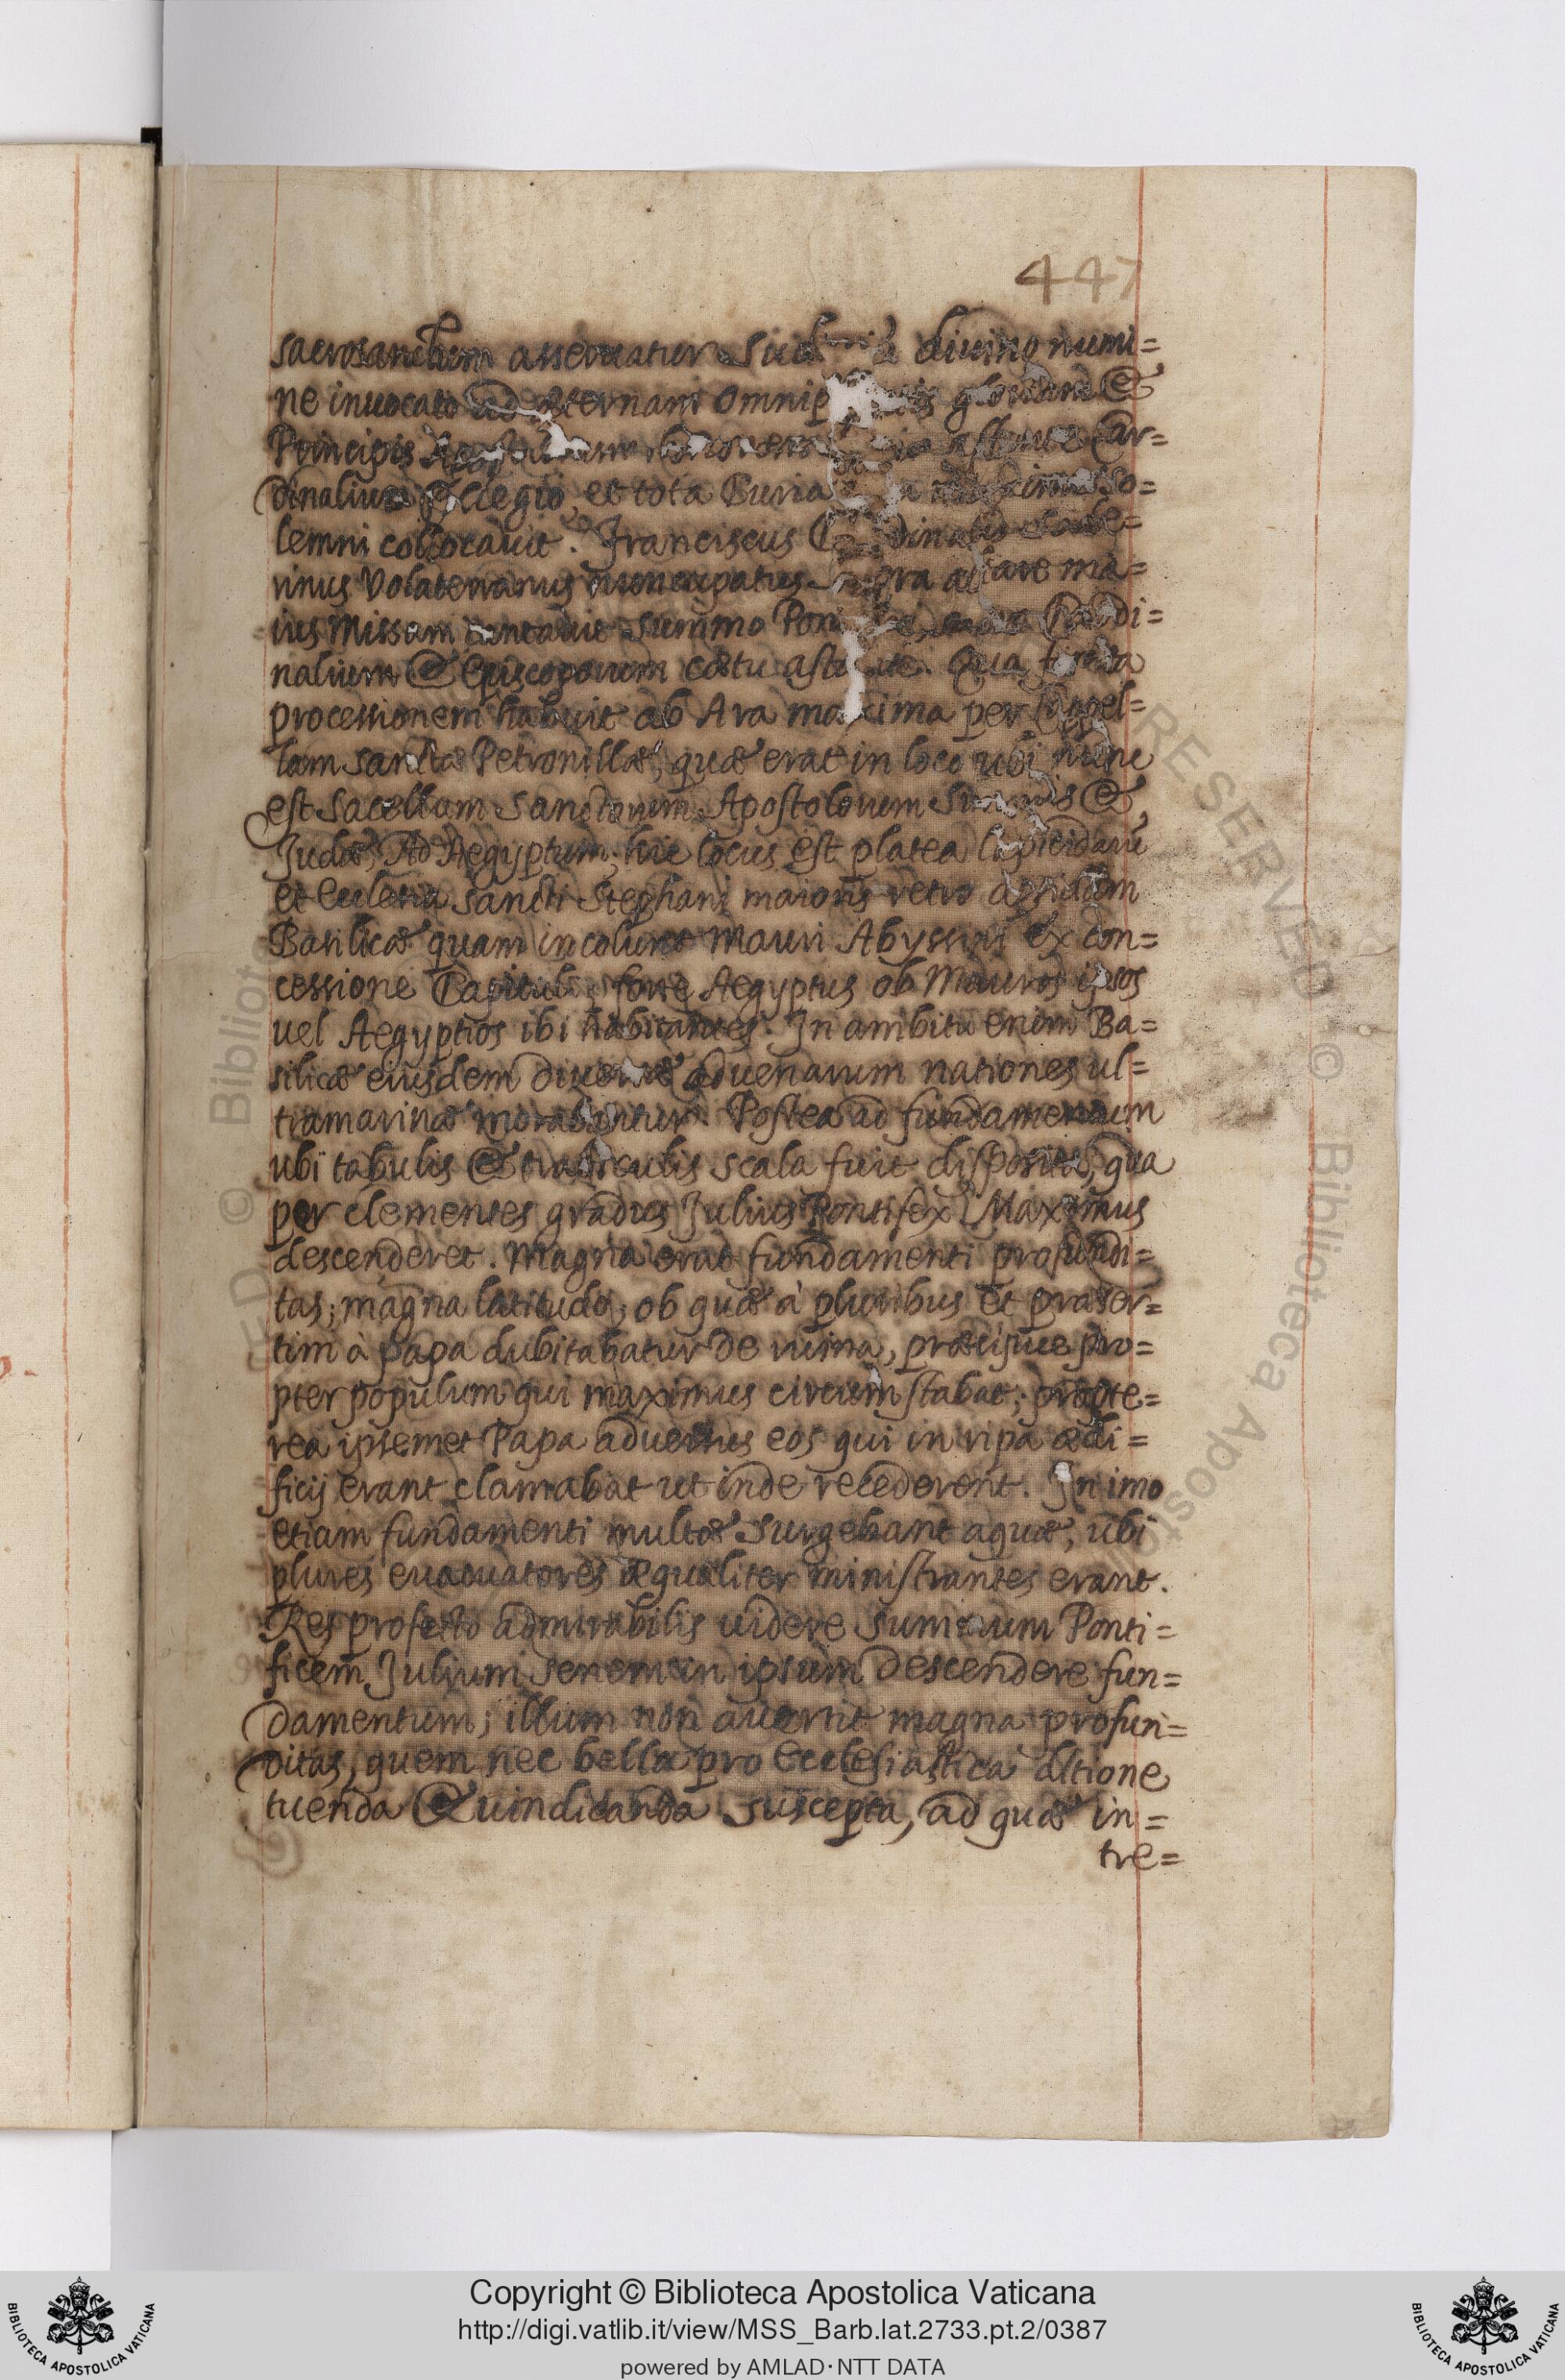 447
sacrosanctum asservatur divino numi=
ne invocato ad æternam gloriam &
Principis
dinalium Collegio, et tota Curia so=
lemni collocavit. Franciscus Sode=
rinus Volaterranus nuncupatus altare ma=
ius Missam cantavit Summo
nalium & Episcoporum cœtu Qua finita
processionem habuit ab Ara maxima per Cappel=
lam sanctæ Petronillæ, quæ erat in loco ubi nunc
est Sacellum Sanctorum Apostolorum Simonis &
Judæ, Ad Aegyptum; hic locus est platea lapicidarū
et Ecclesia sancti Stephani maioris retro apsidam
Basilicæ quam incolunt Mauri Abyssini ex con=
cessione Capituli; forte Aegyptus ob Mauros ipsos
vel Aegyptios ibi habitantes. In ambitu enim Ba=
silicæ eiusdem diversæ advenarum nationes ul=
tramarinæ morabantur. Postea ad fundamentum
ubi tabulis & trabiculis scala fuit disposita, qua
per clementes gradus Julius Pontifex Maximus
descenderet. Magna erat fundamenti profundi=
tas; magna latitudo; ob quæ à pluribus et præser=
tim à papa dubitabatur de ruina, præcipue pro=
pter populum qui maximus circumstabat; propte=
rea ipsemet Papa adversus eos qui in ripa ædi=
ficij erant clamabat ut inde recederent. In imo
etiam fundamenti multæ surgebant aquæ, ubi
plures evacuatores æqualiter ministrantes erant.
Res profecto admirabilis videre Summum Ponti=
ficem Julium senem in ipsum descendere fun=
damentum; illum non avertit magna profun=
ditas, quem nec bella pro Ecclesiastica ditione
tuenda & vindicanda suscepta, ad quæ in=
tre=
Copyright © Biblioteca Apostolica Vaticana
http://digi.vatlib.it/view/MSS_Barb.lat.2733.pt.2/0387
powered by AMLAD·NTT DATA
BIBLIOTECA APOSTOLICA VATICANA
BIBLIOTECA APOSTOLICA VATICANA